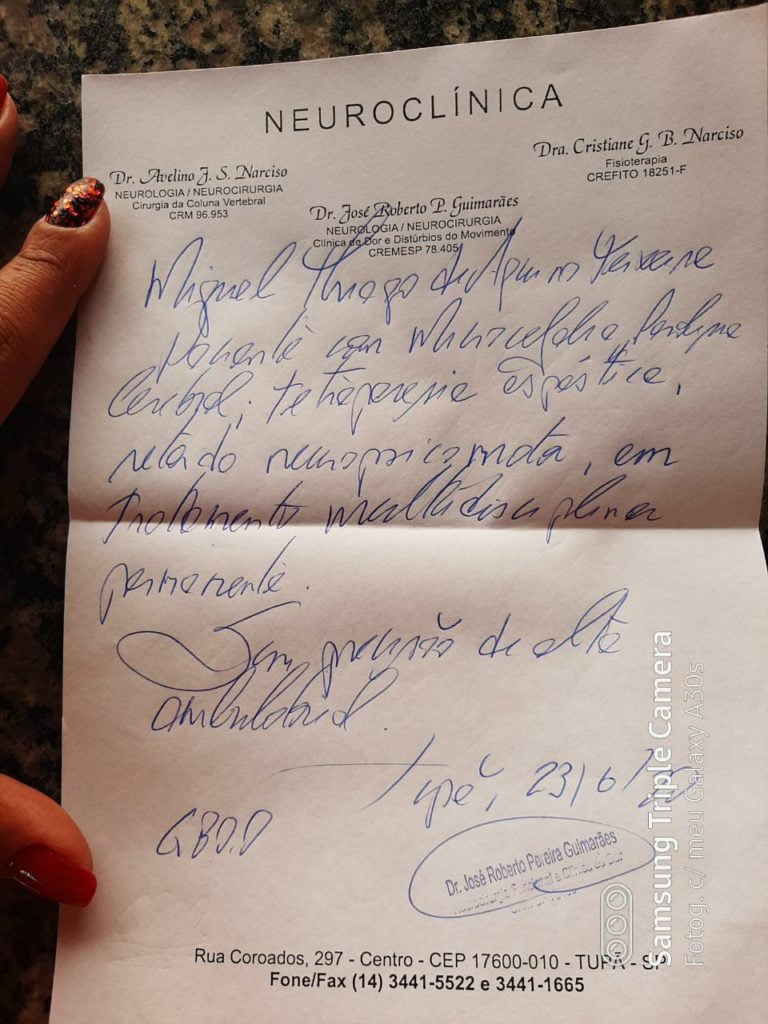 NEUROCLÍNICA
Dr. Avelino J. S. Narciso
NEUROLOGIA / NEUROCIRURGIA
Cirurgia da Coluna Vertebral
CRM 96.953
Dra. Cristiane G. B. Narciso
Fisioterapia
CREFITO 18251-F
Dr. José Roberto P. Guimarães
NEUROLOGIA / NEUROCIRURGIA
Clínica de Dor e Distúrbios do Movimento
CREMESP 78.405
Miguel Thiago de Aquino Teixeira
paciente com Microcefalia, Paralysia
Cerebral, tetraparesia espástica,
neuropsicomotor, em
tratamento multidisciplinar
permanente.
Sem previsão de alta
ambulatorial.
Tupã, 23/6/
G80.0
Dr. José Roberto Pereira Guimarães
Neurocirurgia Funcional e Clínica de Dor
Rua Coroados, 297 - Centro - CEP 17600-010 - TUPÃ - SP
Fone/Fax (14) 3441-5522 e 3441-1665
Samsung Triple Camera
Fotog. c/ meu Galaxy A30s